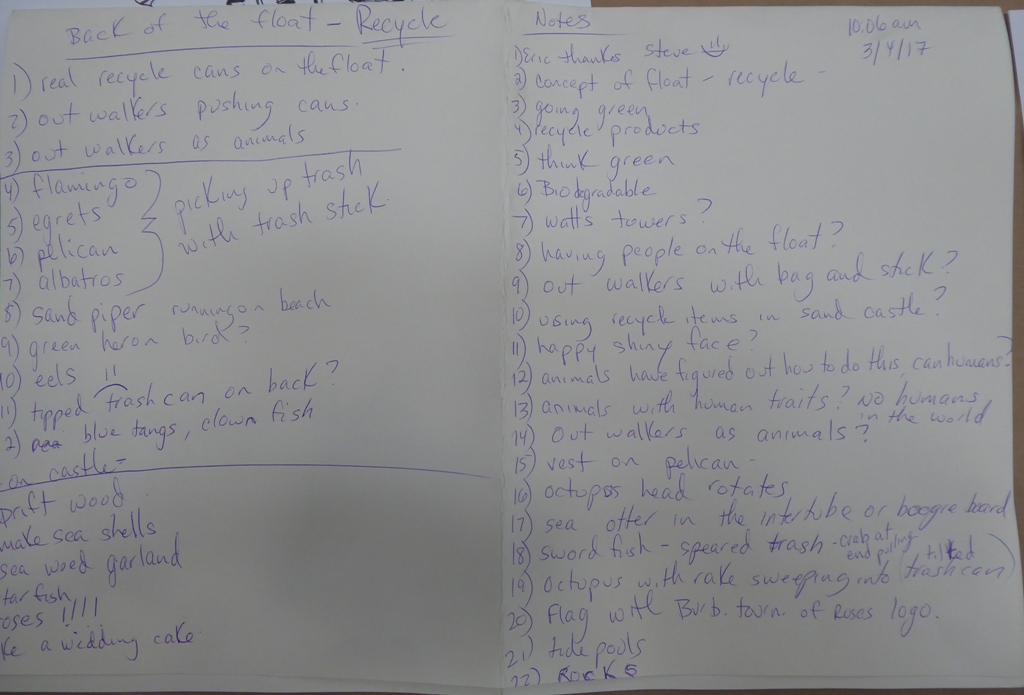 Back of the float - Recycle
1) real recycle cans on the float.
2) out walkers pushing cans.
3) out walkers as animals
4) flamingo
5) egrets
6) pelican
7) albatros
picking up trash
with trash stick
8) sand piper running on beach
9) green heron bird?
10) eels !!
11) tipped trash can on back?
2) blue tangs, clown fish
on castle -
Drift wood
make sea shells
sea weed garland
tar fish
oses !!!!
ke a wedding cake
Notes
10:06am
3/4/17
1) Eric thanks Steve
2) concept of float - recycle -
3) going green
4) recycle products
5) think green
6) Biodegradable
7) watts towers?
8) having people on the float?
9) out walkers with bag and stick?
10) using recycle items in sand castle?
11) happy shiny face?
12) animals have figured out how to do this, can humans?
13) animals with human traits? No humans
in the world
14) Out walkers as animals?
15) vest on pelican -
16) octopus head rotates
17) sea otter in the intertube or boogie board
18) sword fish - speared trash - crab at
end pulling
19) octopus with rake sweeping into (tilted
trash can)
20) Flag with Burb. tourn. of Roses logo.
21) tide pools
22) Rocks